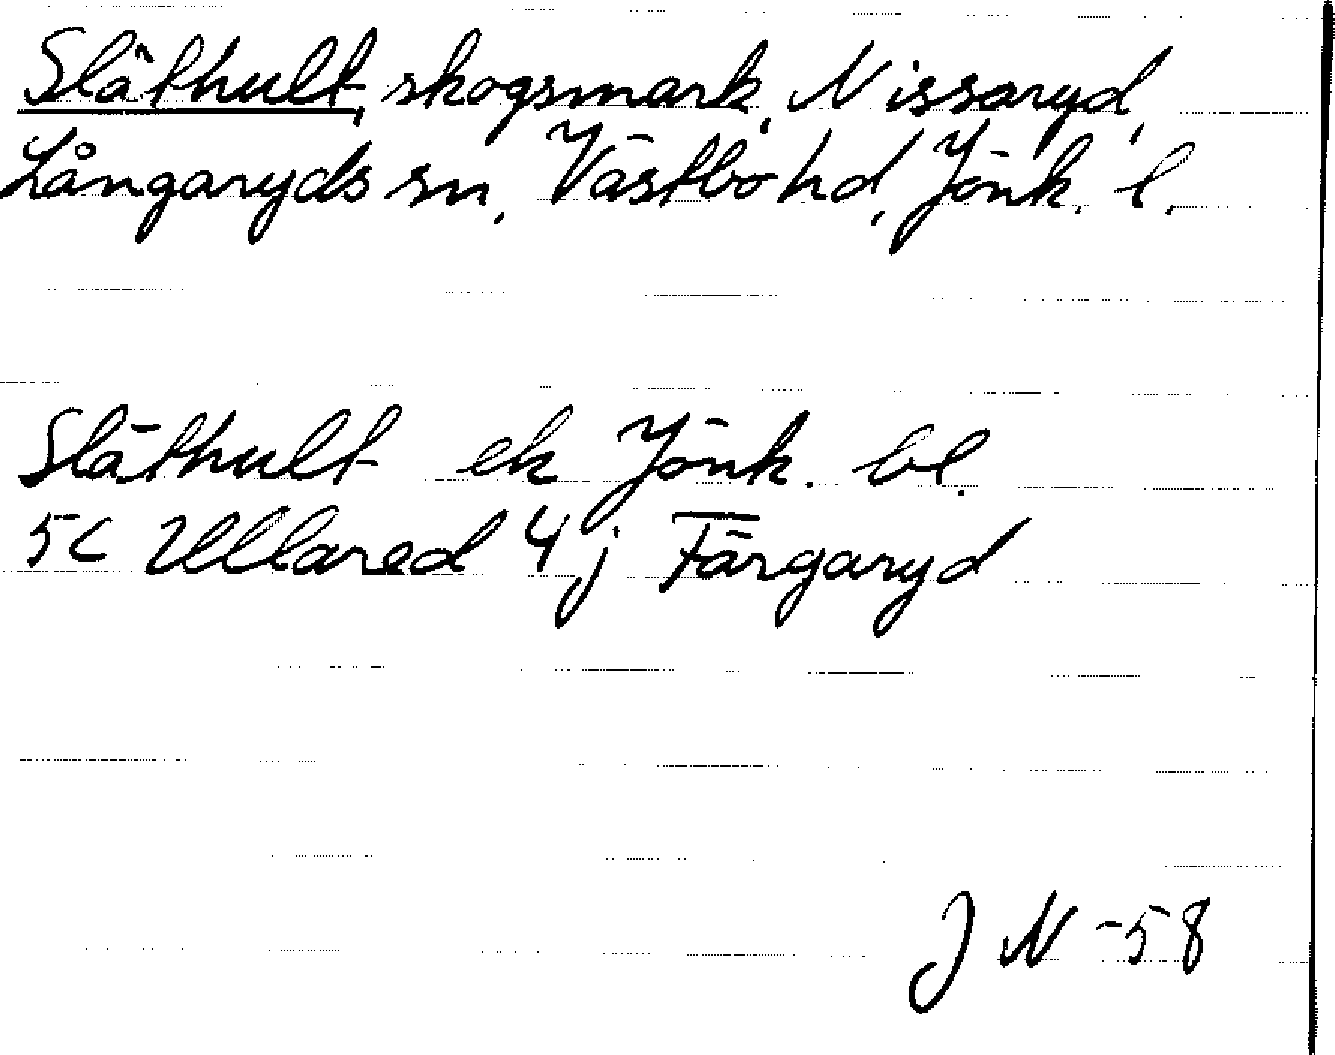 Släthult, skogsmark, Nissaryd,
Långaryds sn, Västbo hd, Jönk. l.
Släthult ek Jönk. bl.
5C Ullared 4j Färgaryd
J N -58